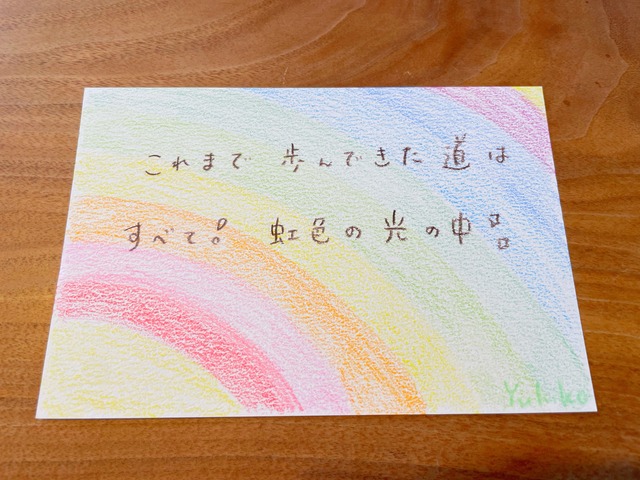 これまで 歩んできた 道は
すべて。 虹色の光の中。。
Yukiko